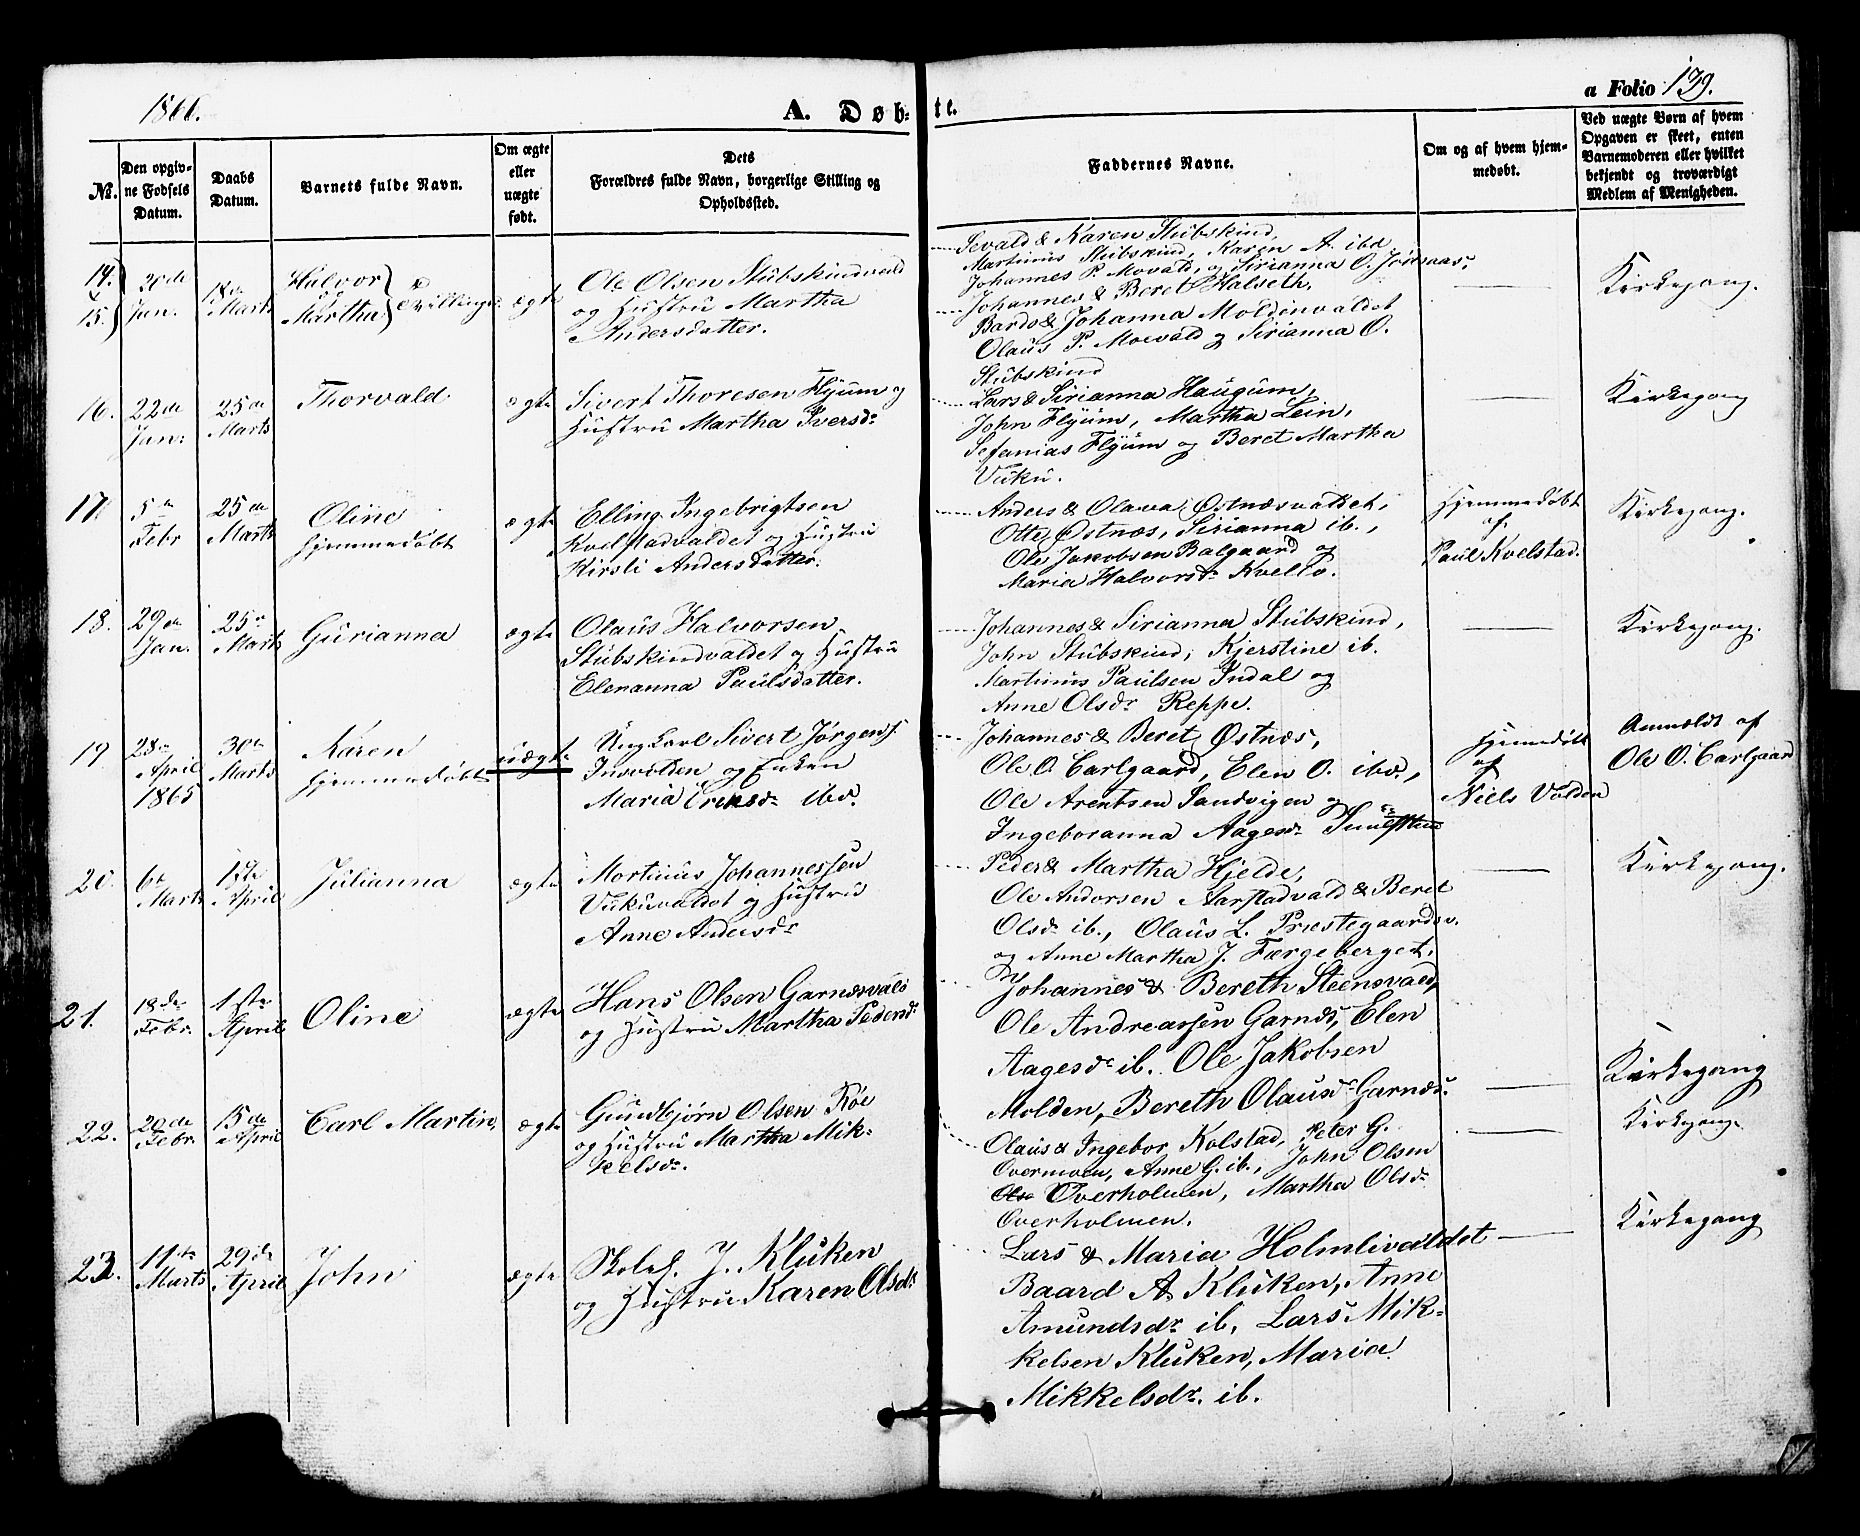 1866.
A. Døb-
te.
a Folio 139.
№.
Den opgiv-
ne Fødsels
Datum.
Daabs
Datum.
Barnets fulde Navn.
Om ægte
eller
uægte
født.
Dets
Forældres fulde Navn, borgerlige Stilling og
Opholdssted.
Faddernes Navne.
Om og af hvem hjem-
medøbt.
Ved uægte Børn af hvem
Opgaven er skeet, enten
Barnemoderen eller hvilket
bekjendt og troværdigt
Medlem af Menigheden.
14.
15.
Jan.
18de
Marts
Halvor
Martha
Tvillinger
ægte
Ole Olsen Stubskindvald
og Hustru Martha
Andersdatter.
Sevald & Karen Stubskind,
Martinus Stubskind, Karen A. ibd
Johannes P. Movald, og Sirianna O.
Johannes & Beret Halseth,
Bardo & Johanna Moldenvaldet
Olaus P. Moevald og Sirianna O.
Stubskind
Kirkegang.
16.
22de
Jan:
25de
Marts
Thorvald
ægte
Sivert Thoresen Flyum og
Hustru Martha Iversdr
Lars & Sirianna Haugum,
John Flyum, Martha Lein,
Sefanias Flyum og Beret Martha
Vuku.
Kirkegang
17.
5te
Febr
25de
Marts
Oline
hjemmedøbt
ægte
Elling Ingebrigtsen
Kvelstadvaldet og Hustru
Kirsti Andersdatter.
Anders & Olava Østnæsvaldet,
Otte Østnæs, Sirianna ib.,
Ole Jakobsen Balgaard og
Maria Halvorsdr Kvello.
Hjemmedøbt
af
Paul Kvelstad.
Kirkegang.
18.
29de
Jan.
25de
Marts
Gurianna
ægte
Olaus Halvorsen
Stubskindvaldet og Hustru
Elenanna Paulsdatter.
Johannes & Sirianna Stubskind,
John Stubskind, Kjerstine ib.
Martinus Paulsen Indal og
Anne Olsdr Reppe.
Kirkegang.
19
28de
April
1865
30te
Marts
Karen
hjemmedøbt
uægte
Ungkarl Sivert Jørgens.
Insvolden og Enken
Maria Eriksdr ibd.
Johannes & Beret Østnæs,
Ole O. Carlgaard, Elen O. ibd.,
Ole Arentsen Sandvigen og
Ingeboranna Aagesdr
Hjemmedøbt
af
Niels Volden
Anmeldt af
Ole O. Carlgaard
20.
6te
Marts
1ste
April
Julianna
ægte
Mortinus Johannessen
Vukuvaldet og Hustru
Anne Andersdr
Peder & Martha Hjelde,
Ole Andorsen Aarstadvald & Beret
Olsdr ib., Olaus L. Præstegaardsv.
og Anne Martha J. Færgeberget.
Kirkegang.
21.
18de
Febr.
1ste
April
Oline
ægte
Hans Olsen Garnæsvald
og Hustru Martha Pedersdr
Johannes & Bereth Steensvald,
Ole Andreassen Garnæs, Elen
Aagesdr ib. Ole Jakobsen
Molden, Bereth Olausdr Garnæs.
Kirkegang
22.
20de
Febr.
15de
April
Carl Martin,
ægte
Gundbjørn Olsen Røe
og Hustru Martha Mik-
kelsdr.
Olaus & Ingebor Kolstad, Peter G.
Overmoen, Anne G. ib., John Olsen
Overholmen, Martha Olsdr
Overholmen.
Kirkegang.
23.
11te
Marts
29de
April
John
ægte
Skolel. J. Kluken
og Hustru Karen Olsdr
Lars & Maria Holmlivaldet
Baard A. Kluken, Anne
Amundsdr ib, Lars Mik-
kelsen Kluken, Maria
Mikkelsdr. ib.
Kirkegang